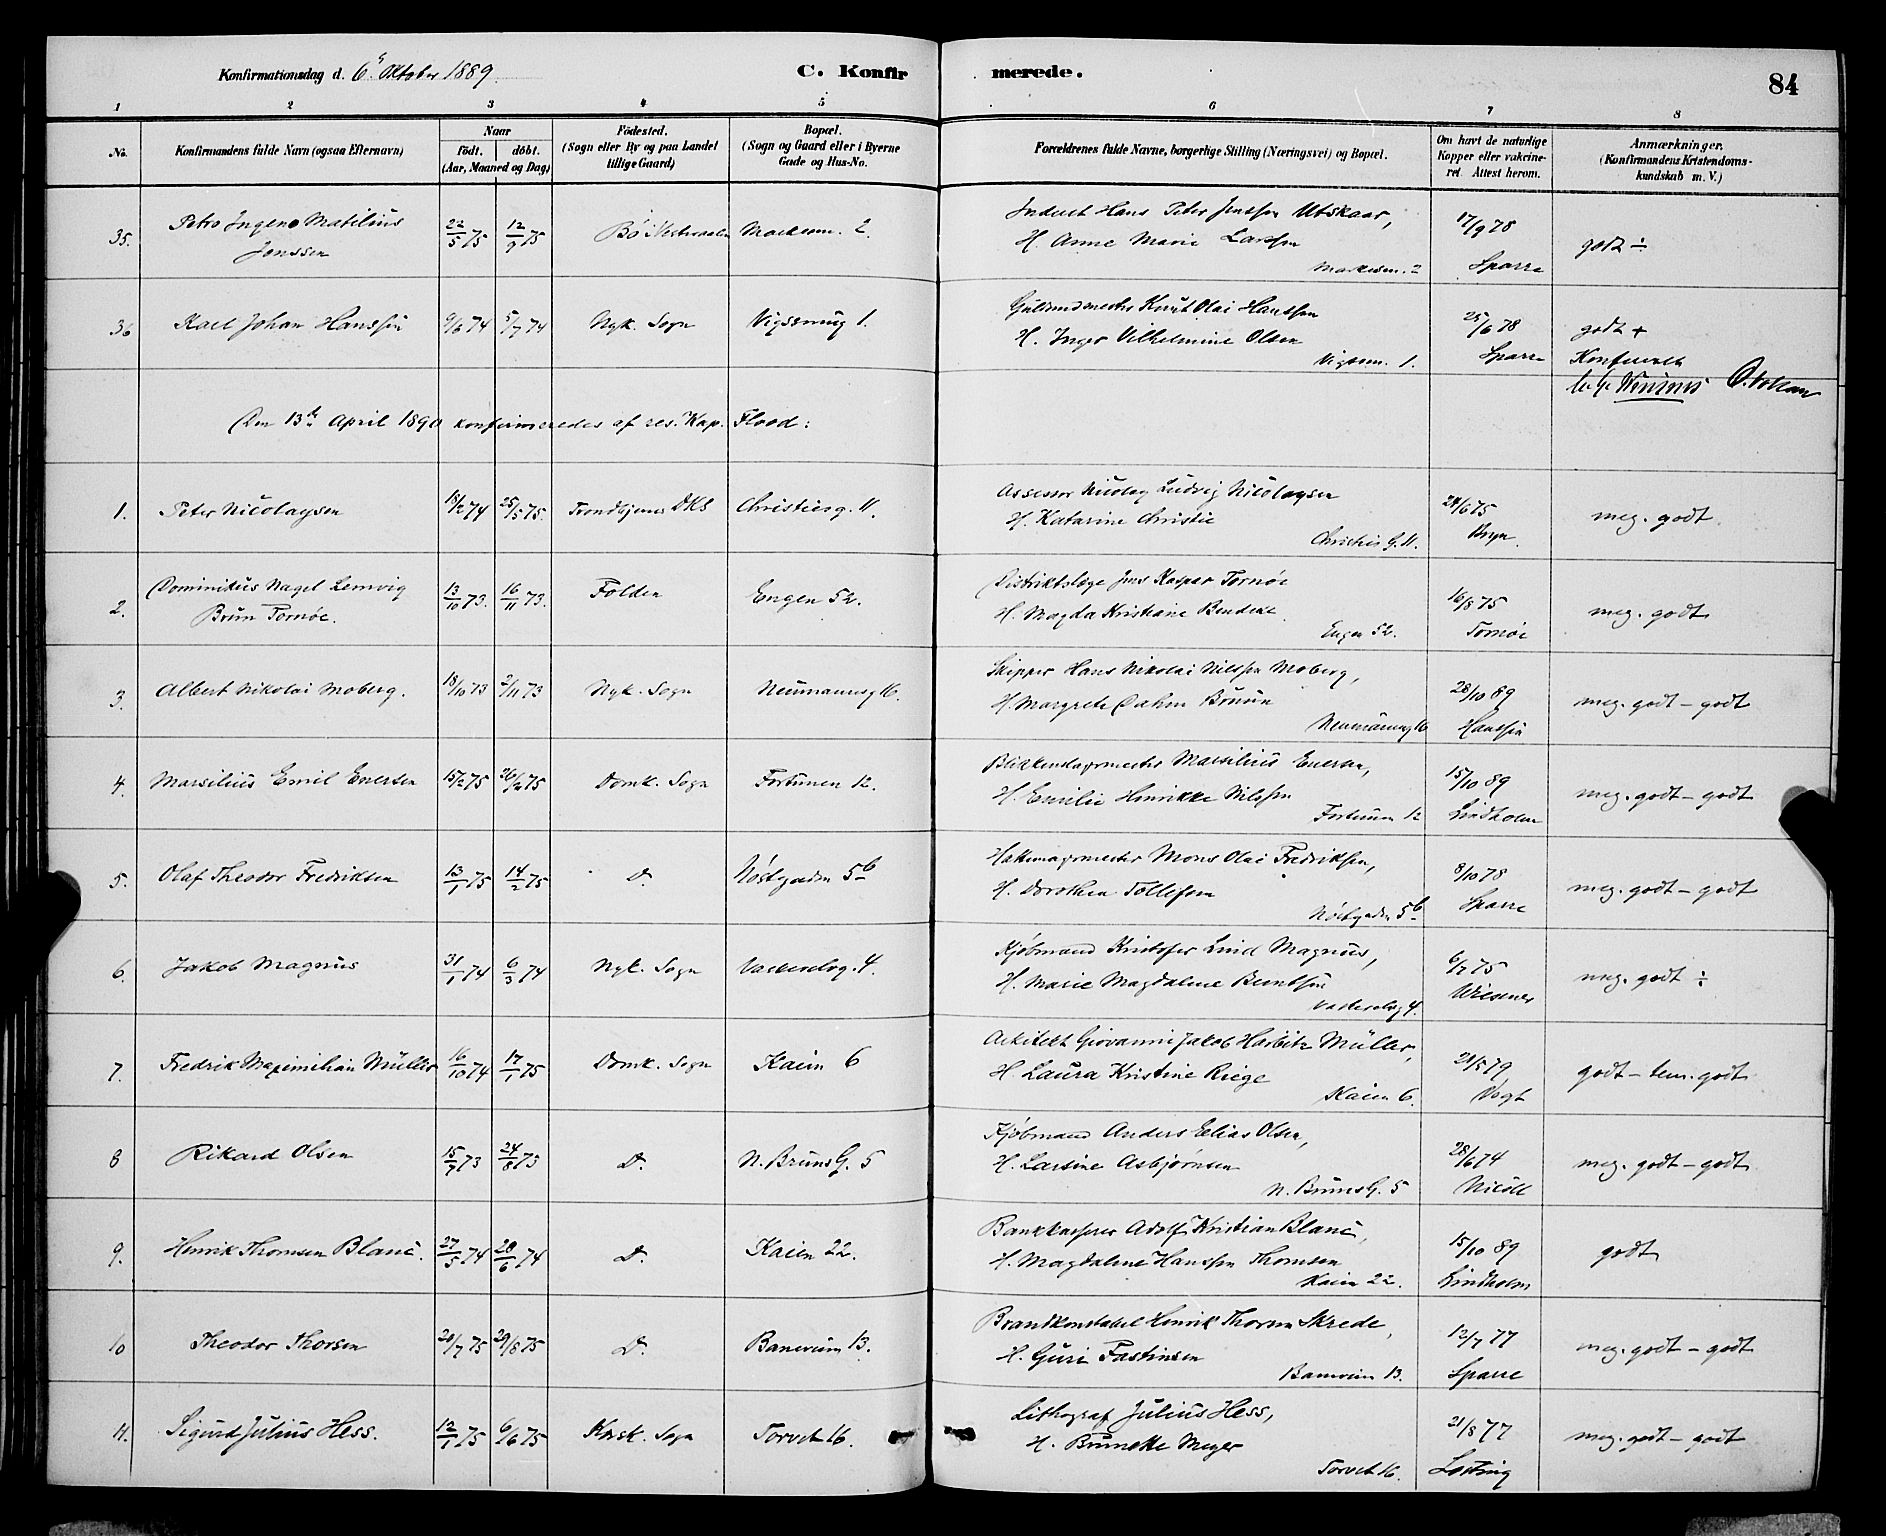 Konfirmationsdag d. 6te Oktober 1889.
C. Konfirmerede.
84
1 2 3 4 5 6 7 8
No.
Konfirmandens fulde Navn (ogsaa Efternavn)
Naar
födt. döbt.
(Aar, Maaned og Dag)
Födested.
(Sogn eller By og paa Landet
tillige Gaard)
Bopæl.
(Sogn og Gaard eller i Byerne
Gade og Hus-No.
Forældrenes fulde Navne, borgerlige Stilling (Næringsvei) og Bopæl.
Om havt de naturlige
Kopper eller vakcine-
ret. Attest herom.
Anmærkninger.
(Konfirmandens Kristendoms-
kundskab m. V.)
35. Petro Ingeno Matilius
Jenssen
22/5 75 12/9 75 Bö i Vesteraalen 2.
Hans Peter Jenssen Utskaar,
H. Anne Marie Larssen
17/9 78
Sparre
godt ÷
36 Karl Johan Hanssen 9/6 74 5/7 74 Nyk. Sogn 1.
Knut Olai Hanssen
H. Inger Vilhelmine Olsen
1.
25/6 78
Sparre
godt +
Den 13de April 1890 konfirmeredes af res. Kap. Flood:
1. Peter Nicolaysen 18/2 74 25/5 75. Trondhjems DKS Christiesg. 11.
Assessor Nicolay Ludvig Nicolaysen
H. Katarine Christie
Christies G. 11.
24/6 75
meg. godt
2. Dominikus Nagel Lemvig
Brun Tornöe.
13/10 73. 16/11 73. Folden Engen 52.
Distriktslæge Jens Kaspar Tornöe
H. Magda Kristiane Bendeke
Engen 52.
16/8 75
Tornöe
meg. godt
3. Albert Nikolai Moberg. 18/10 73 2/11 73 Nyk. Sogn Neumannsg 16.
Skipper Hans Nikolai Nilssen Moberg,
H. Margrete Dahm Bruun
Neumannsg 16
28/10 89
Hanssen
meg. godt – godt
4. Marsilius Emil Enersen 15/2 75 26/2 75 Domk. Sogn Fortunen 12.
Blikkenslagermester Marsilius Enersen,
H. Emilie Hinrikke Nilssen
Fortunen 12
15/10 89
Lindholm
meg. godt – godt
5. Olaf Theodor Fredriksen 13/1 75 14/2 75 D. Nöstgaden 5b
Hattemagermester Mons Olai Fredriksen,
H. Dorothea Tollefsen
Nöstgaden 5b
8/10 78
Sparre
meg. godt – godt
6. Jakob Magnus 31/1 74 6/3 74 Nyk. Sogn Vaskerelvg. 4.
Kjöbmand Kristofer Lind Magnus,
H. Marie Magdalene Berntsen
Vaskerelvg 4.
6/7 75
Wiesener
meg. godt ÷
7. Fredrik Maximilian Müller 16/10 74 17/1 75 Domk. Sogn Kaien 6
Arkitekt Giovanni Jakob Harbitz Müller,
H. Laura Kristine Riege
Kaien 6.
21/5 79
Vogt
godt – tem. godt
8 Rikard Olsen 15/7 73 24/8 73 D. N. Bruns G. 5
Kjöbmand Anders Elias Olsen,
H. Larsine Asbjörnsen
N. Bruns G. 5
28/6 74
Nicoll
meg. godt – godt
9. Henrik Thomsen Blanc. 27/5 74 28/6 74 D. Kaien 22.
Bankkasserer Adolf Kristian Blanc,
H. Magdalene Hanssen Thomsen
Kaien 22.
15/10 89
Lindholm
godt
10 Theodor Thorsen 20/7 75 29/8 75 D. Baneveien 13.
Brandkonstabel Henrik Thorsen Skrede,
H. Guri Fastinsen
Baneveien 13.
12/7 77
Sparre
meg. godt – godt
11. Sigurd Julius Hess. 12/1 75 6/6 75 Korsk. Sogn Torvet 16.
Lithograf Julius Hess,
H. Bruneke Meyer
Torvet 16.
21/8 77
Losting
meg. godt – godt